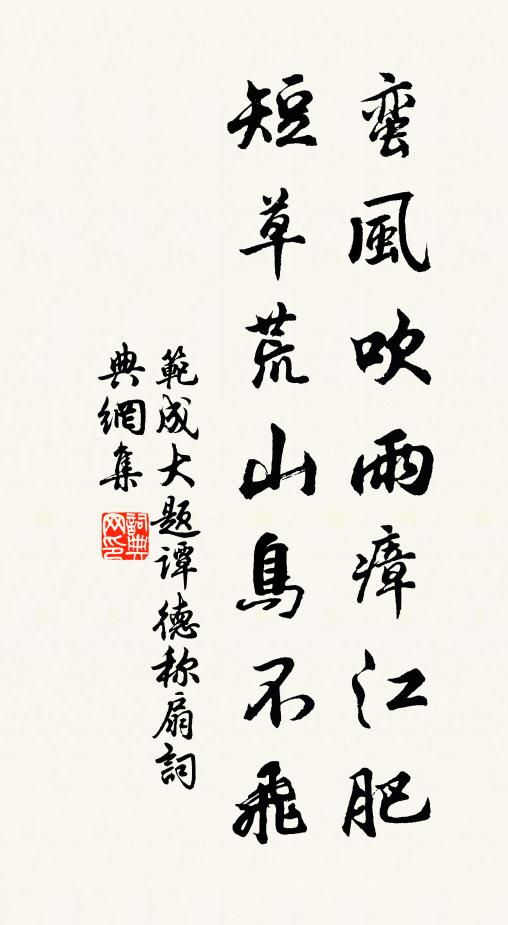 蛮風吹雨瘴江肥
短草荒山鳥不飛
範成大題譚德称扇詞
典網集
詞典
网印